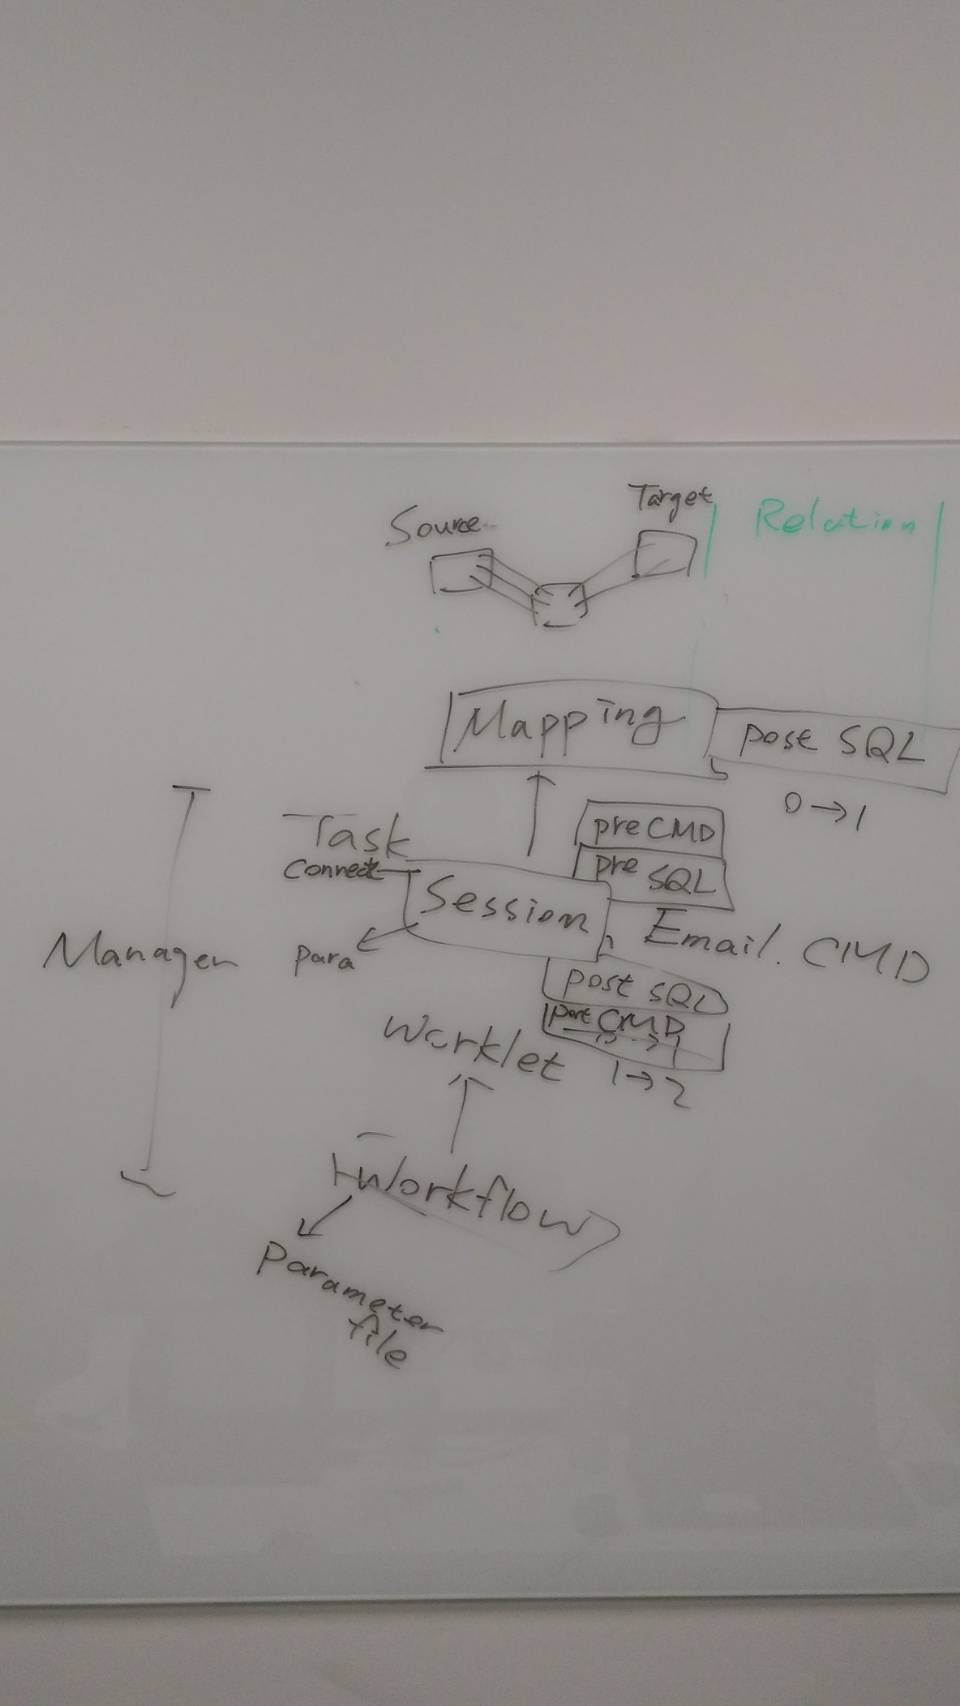 Source
Target
Relation
Mapping
post SQL
0→1
Task
Connect
pre CMD
pre SQL
Session
Email. CMD
Manager
para
post SQL
post CMD
Worklet
1→2
Workflow
Parameter
file